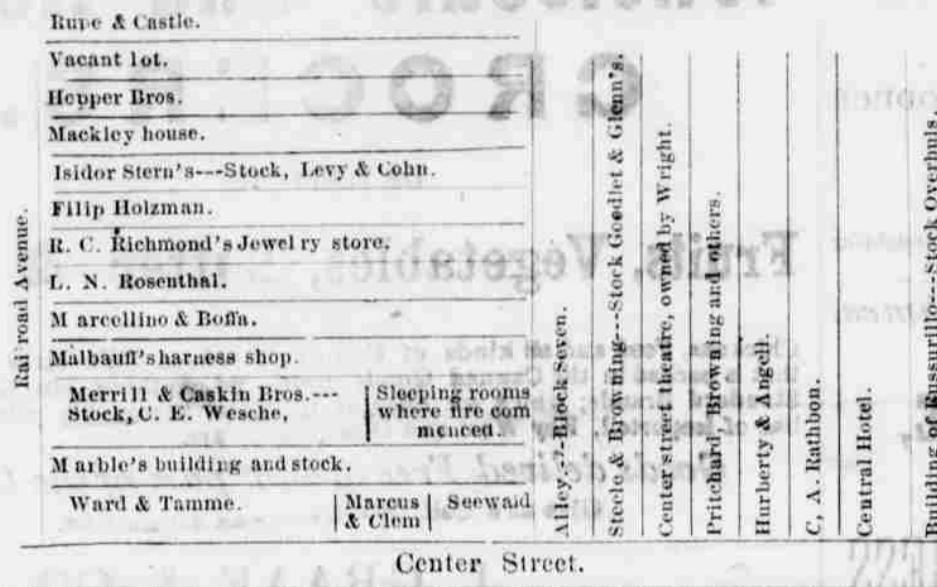 Rupe & Castle.
Vacant lot.
Hopper Bros.
Mackley house.
Isidor Stern's---Stock, Levy & Cohn.
Filip Holzman.
R. C. Richmond's Jewelry store.
L. N. Rosenthal.
Marcellino & Boffa.
Malbauff's harness shop.
Merrill & Caskin Bros.---
Stock, C. E. Wesche,
Sleeping rooms
where fire com
menced.
Marble's building and stock.
Ward & Tamme.
Marcus
& Clem
Seewald
Rai'road Avenue.
Alley-7-Block Seven.
Steele & Browning---Stock Goodlet & Glenn's.
Center street theatre, owned by Wright.
Prichard, Browning and others.
Hurberty & Angell.
C, A. Rathbon.
Central Hotel.
Building of Fussurillo---Stock Overhuls.
Center Street.